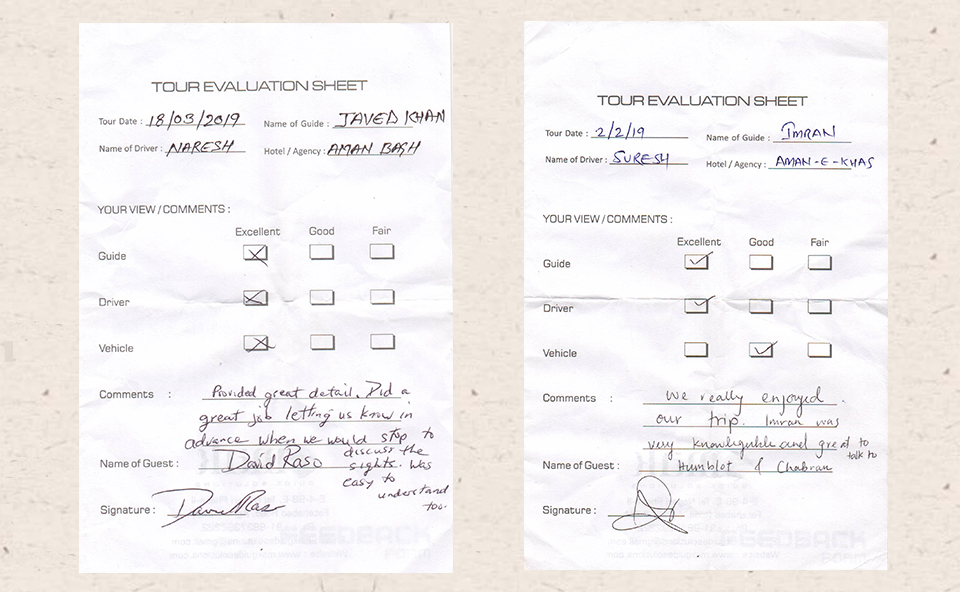 TOUR EVALUATION SHEET
Tour Date : 18/03/2019 Name of Guide : JAVED KHAN
Name of Driver : NARESH Hotel / Agency : AMAN BAGH
YOUR VIEW / COMMENTS :
Excellent Good Fair
Guide
Driver
Vehicle
Comments : Provided great detail. Did a
great job letting us know in
advance when we would stop to
discuss the
sights. Was
easy to
understand
too.
Name of Guest : David Raso
Signature :
TOUR EVALUATION SHEET
Tour Date : 2/2/19 Name of Guide : IMRAN
Name of Driver : SURESH Hotel / Agency : AMAN-E-KHAS
YOUR VIEW / COMMENTS :
Excellent Good Fair
Guide
Driver
Vehicle
Comments : We really enjoyed
our trip. Imran was
very knowliguble and great to
talk to
Name of Guest : Humblot & Chabran
Signature :